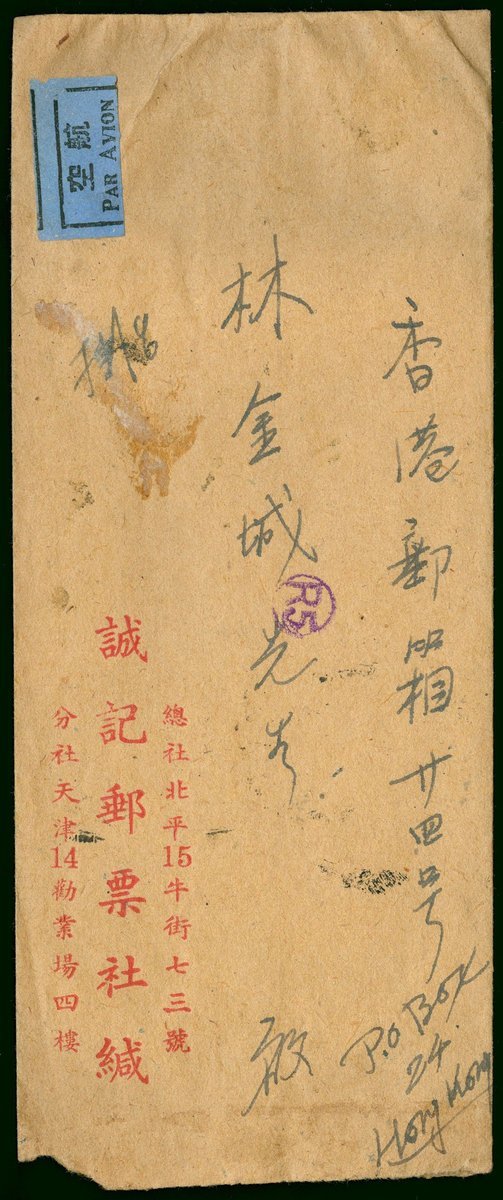 香港郵箱廿四号
P.O Box
24.
Hong Kong
林金城先生
啟
掛号
航空
PAR AVION
R5
總社北平15牛街七三號
誠記郵票社緘
分社天津14勸業場四樓